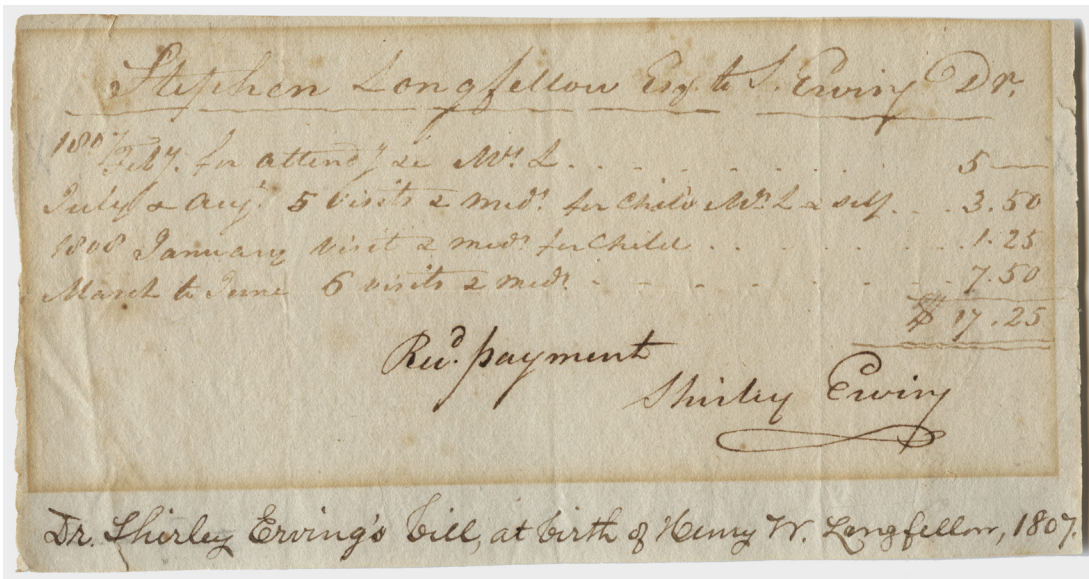 Stephen Longfellow Esq. to S. Erving Dr.
1807 Feby. for attendg &c Mrs L . . . . . . . 5 —
July & Augt 5 visits & medn for child Mrs L & self . . . 3.50
1808 January visit & medn for child . . . . . . . 1.25
March to June 6 visits & medn . . . . . . . 7.50
$ 17.25
Recd. payment
Shirley Erving
Dr. Shirley Erving's bill, at birth of Henry W. Longfellow, 1807.